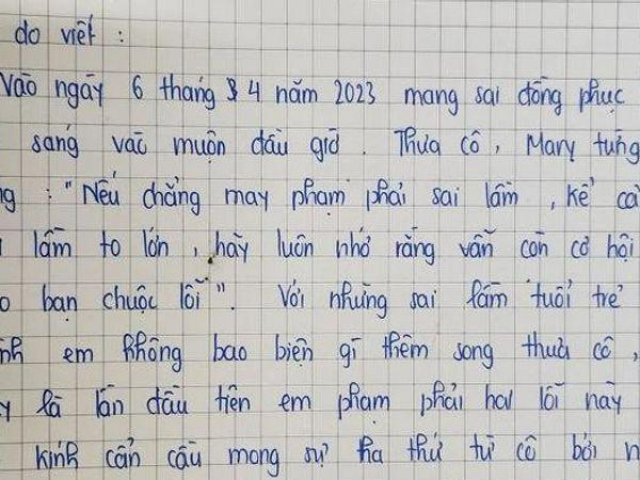 do viết :
Vào ngày 6 tháng 4 năm 2023 mang sai đồng phục
sáng vào muộn đầu giờ. Thưa cô, Mary từng
: "Nếu chẳng may phạm phải sai lầm, kể cả
lầm to lớn, hãy luôn nhớ rằng vẫn còn cơ hội
bạn chuộc lỗi". Với những sai lầm tuổi trẻ
em không bao biện gì thêm song thưa cô,
là lần đầu tiên em phạm phải hai lỗi này
kính cẩn cầu mong sự tha thứ từ cô bởi